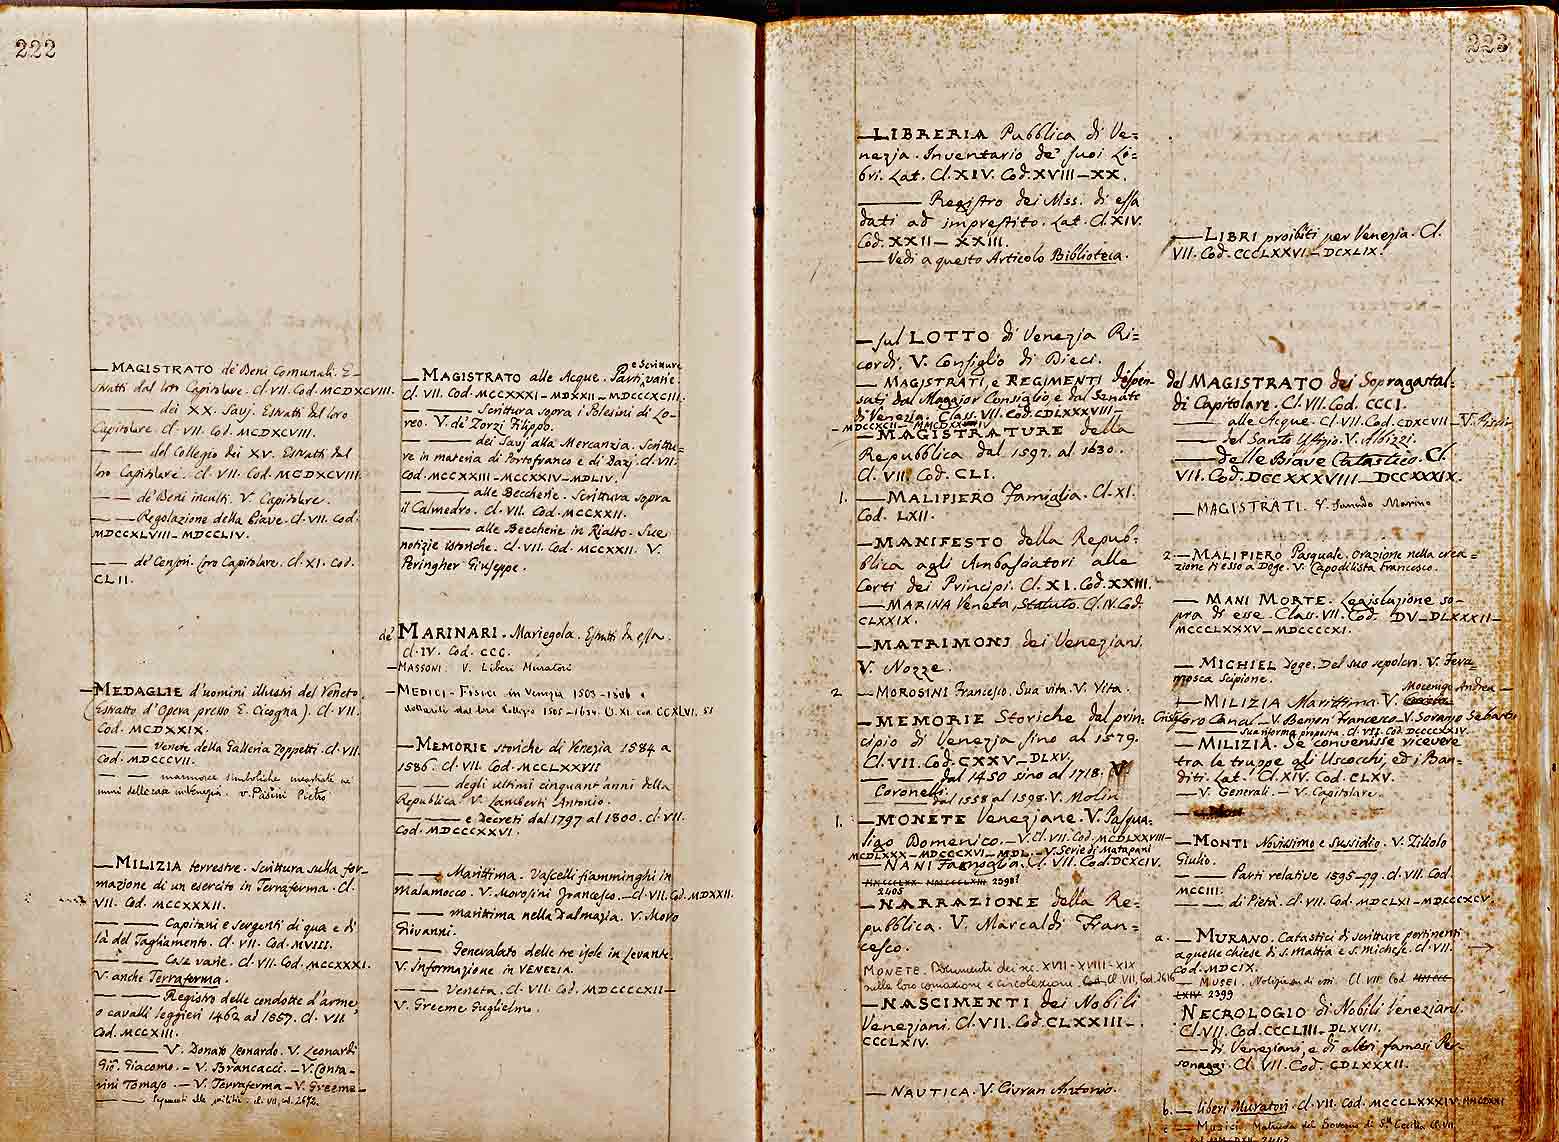 222
— MAGISTRATO de' Beni Comunali. E-
stratti dal loro Capitolare. Cl. VII. Cod. MCDXCVIII.
— — dei XX. Savj. Estratti del loro
Capitolare. Cl. VII. Cod. MCDXCVIII.
— — del Collegio dei XV. Estratti del
loro Capitolare. Cl. VII. Cod. MCDXCVIII.
— — de' Beni inculti. V. Capitolare.
— — Regolazione della Piave. Cl. VII. Cod.
MDCCXLVIII — MDCCLIV.
— — de' Censori. Loro Capitolare. Cl. XI. Cod.
CLII.
— MEDAGLIE d'uomini illustri del Veneto.
(Estratto d'Opera presso E. Cicogna). Cl. VII.
Cod. MCDXXIX.
— — Venete della Galleria Zoppetti. Cl. VII.
Cod. MDCCCVII.
— — marmoree simboliche incastrate nei
muri delle case in Venezia. V. Pasini Pietro
— MILIZIA terrestre. Scrittura sulla for-
mazione di un esercito in Terraferma. Cl.
VII. Cod. MCCXXXII.
— — Capitani e sergenti di qua e di
là del Tagliamento. Cl. VII. Cod. MVIII.
— — Cose varie. Cl. VII. Cod. MCCXXXI.
V. anche Terraferma.
— — Registro delle condotte d'arme,
o cavalli leggieri 1462 ad 1557. Cl. VII.
Cod. MCCXIII.
— — V. Donato Leonardo. V. Leonardi
Gio. Giacomo. — V. Brancacci. — V. Conta-
rini Tomaso. — V. Terraferma — V. Greeme —
— alle milizie. Cl. VII, cod. 2672.
e Scritture
— MAGISTRATO alle Acque. Parti varie.
Cl. VII. Cod. MCCXXXI — MDXXII — MDCCCXCIII.
— — Scrittura sopra i Polesini di Lo-
reo. V. de' Zorzi Filippo.
— — dei Savj alla Mercanzia. Scrittu-
re in materia di Portofranco e di Dazj. Cl. VII.
Cod. MCCXXIII — MCCXXIV — MDLIV.
— — alle Beccherie. Scrittura sopra
il Calmedro. Cl. VII. Cod. MCCXXII.
— — alle Beccherie in Rialto. Sue
notizie istoriche. Cl. VII. Cod. MCCXXII. V.
Peringher Giuseppe.
de' MARINARI. Mariegola. Estratti da essa.
Cl. IV. Cod. CCC.
— MASSONI. V. Liberi Muratori
— MEDICI - Fisici in Venezia 1503 - 1506 e
dottorati dal loro Collegio 1505 - 1634. Cl. XI. cod. CCXLVI. 51
— MEMORIE storiche di Venezia 1584 a
1586. Cl. VII. Cod. MCCLXXVII
— — degli ultimi cinquant'anni della
Republica. V. Lamberti Antonio.
— — e Decreti dal 1797 al 1800. Cl. VII.
Cod. MDCCCXXVI.
— — Marittima. Vascelli fiamminghi in
Malamocco. V. Morosini Francesco. — Cl. VII. Cod. MDXXII.
— — marittima nella Dalmazia. V. Moro
Giovanni.
— — Generalato delle tre isole in Levante.
V. Informazione in VENEZIA.
— — Veneta. Cl. VII. Cod. MDCCCCXII —
V. Greeme Guglielmo.
223
— LIBRERIA Pubblica di Ve=
nezia. Inventario de' suoi Li=
bri. Lat. Cl. XIV. Cod. XVIII — XX.
— Registro dei Mss. di essa
dati ad imprestito. Lat. Cl. XIV.
Cod. XXII — XXIII.
— Vedi a questo Articolo Biblioteca.
— sul LOTTO di Venezia Ri=
cordi. V. Consiglio di Dieci.
— MAGISTRATI, e REGIMENTI dispen-
sati dal Maggior Consiglio e dal Senato
di Venezia. Class. VII. Cod. CDLXXXVIII —
— MAGISTRATURE della
Repubblica dal 1597. al 1630.
Cl. VII. Cod. CLI.
1. — MALIPIERO Famiglia. Cl. XI.
Cod. LXII.
— MANIFESTO della Repub=
blica agli Ambasciatori alle
Corti dei Principi. Cl. XI. Cod. XXIII.
— MARINA Veneta, Statuto. Cl. IV. Cod.
CLXXIX.
— MATRIMONJ dei Veneziani.
V. Nozze.
2 — MOROSINI Francesco. Sua vita. V. Vita.
— MEMORIE Storiche dal prin-
cipio di Venezia sino al 1579.
Cl. VII. Cod. CXXV — DLXV.
— dal 1450 sino al 1718. V.
Coronelli.
— dal 1558 al 1598. V. Molin
1. — MONETE Veneziane. V. Pasqua-
ligo Domenico. — V. Cl. VII. Cod. MCDLXXVIII —
MCDLXXX — MDCCCXVI — MDL. — V. Serie di Matapani
— NANI Famiglia. Cl. VII. Cod. DCXCIV.
2398!
2405
— NARRAZIONE della Re=
pubblica. V. Marcaldi Fran=
cesco.
MONETE. Documenti dei sec. XVII - XVIII - XIX
sulla loro coniazione e circolazione. Cl. VII, Cod. 2616
— NASCIMENTI dei Nobili
Veneziani. Cl. VII. Cod. CLXXIII —
CCCLXIV.
— NAUTICA. V. Civran Antonio.
— LIBRI proibiti per Venezia. Cl.
VII. Cod. CCCLXXVI — DCXLIX.
del MAGISTRATO dei Sopragastal-
di Capitolare. Cl. VII. Cod. CCCI.
— alle Acque. Cl. VII. Cod. CDXCVII — V.
— del Santo Uffizio. V. Albizzi.
— delle Biave Catastico. Cl.
VII. Cod. DCCXXXVIII — DCCXXXIX.
— MAGISTRATI. V. Sanudo Marino
2. — MALIPIERO Pasquale. Orazione nella crea=
zione di esso a Doge. V. Capodilista Francesco.
— MANI MORTE. Legislazione so-
pra di esse. Class. VII. Cod. DV — DLXXXII —
MCCCLXXXV — MDCCCCXI.
— MICHIEL Doge. Del suo sepolcro. V. Fera-
mosca Scipione.
Mocenigo Andrea —
— MILIZIA Marittima. V.
Cristoforo Canal — V. Bemben Francesco — V. Soranzo Sebastia
— Sua riforma proposta. Cl. VII. Cod. DCCCCXXIV.
— MILIZIA. Se convenisse ricevere
tra le truppe gli Uscocchi, ed i Ban-
diti. Lat. Cl. XIV. Cod. CLXV.
— V. Generali. — V. Capitolare.
— MONTI Novissimo e Sussidio. V. Ziliolo
Giulio.
— Parti relative 1595-99. Cl. VII. Cod.
MCCIII.
— di Pietà. Cl. VII. Cod. MDCLXI — MDCCCXCV.
a. — MURANO. Catastici di scritture pertinenti
a quelle chiese di S. Mattia e S. Michele. Cl. VII.
Cod. MDCIX.
— MUSEI. Cl. VII. Cod.
2399
NECROLOGIO di Nobili Veneziani.
Cl. VII. Cod. CCCLIII — DLXVII.
— di Veneziani, e di altri famosi Per-
sonaggi. Cl. VII. Cod. CDLXXXII.
b. — liberi Muratori. Cl. VII. Cod. MCCCLXXXIV.
c — Musici. Matricola del Sovegno di Sta Cecilia Cl. VII.